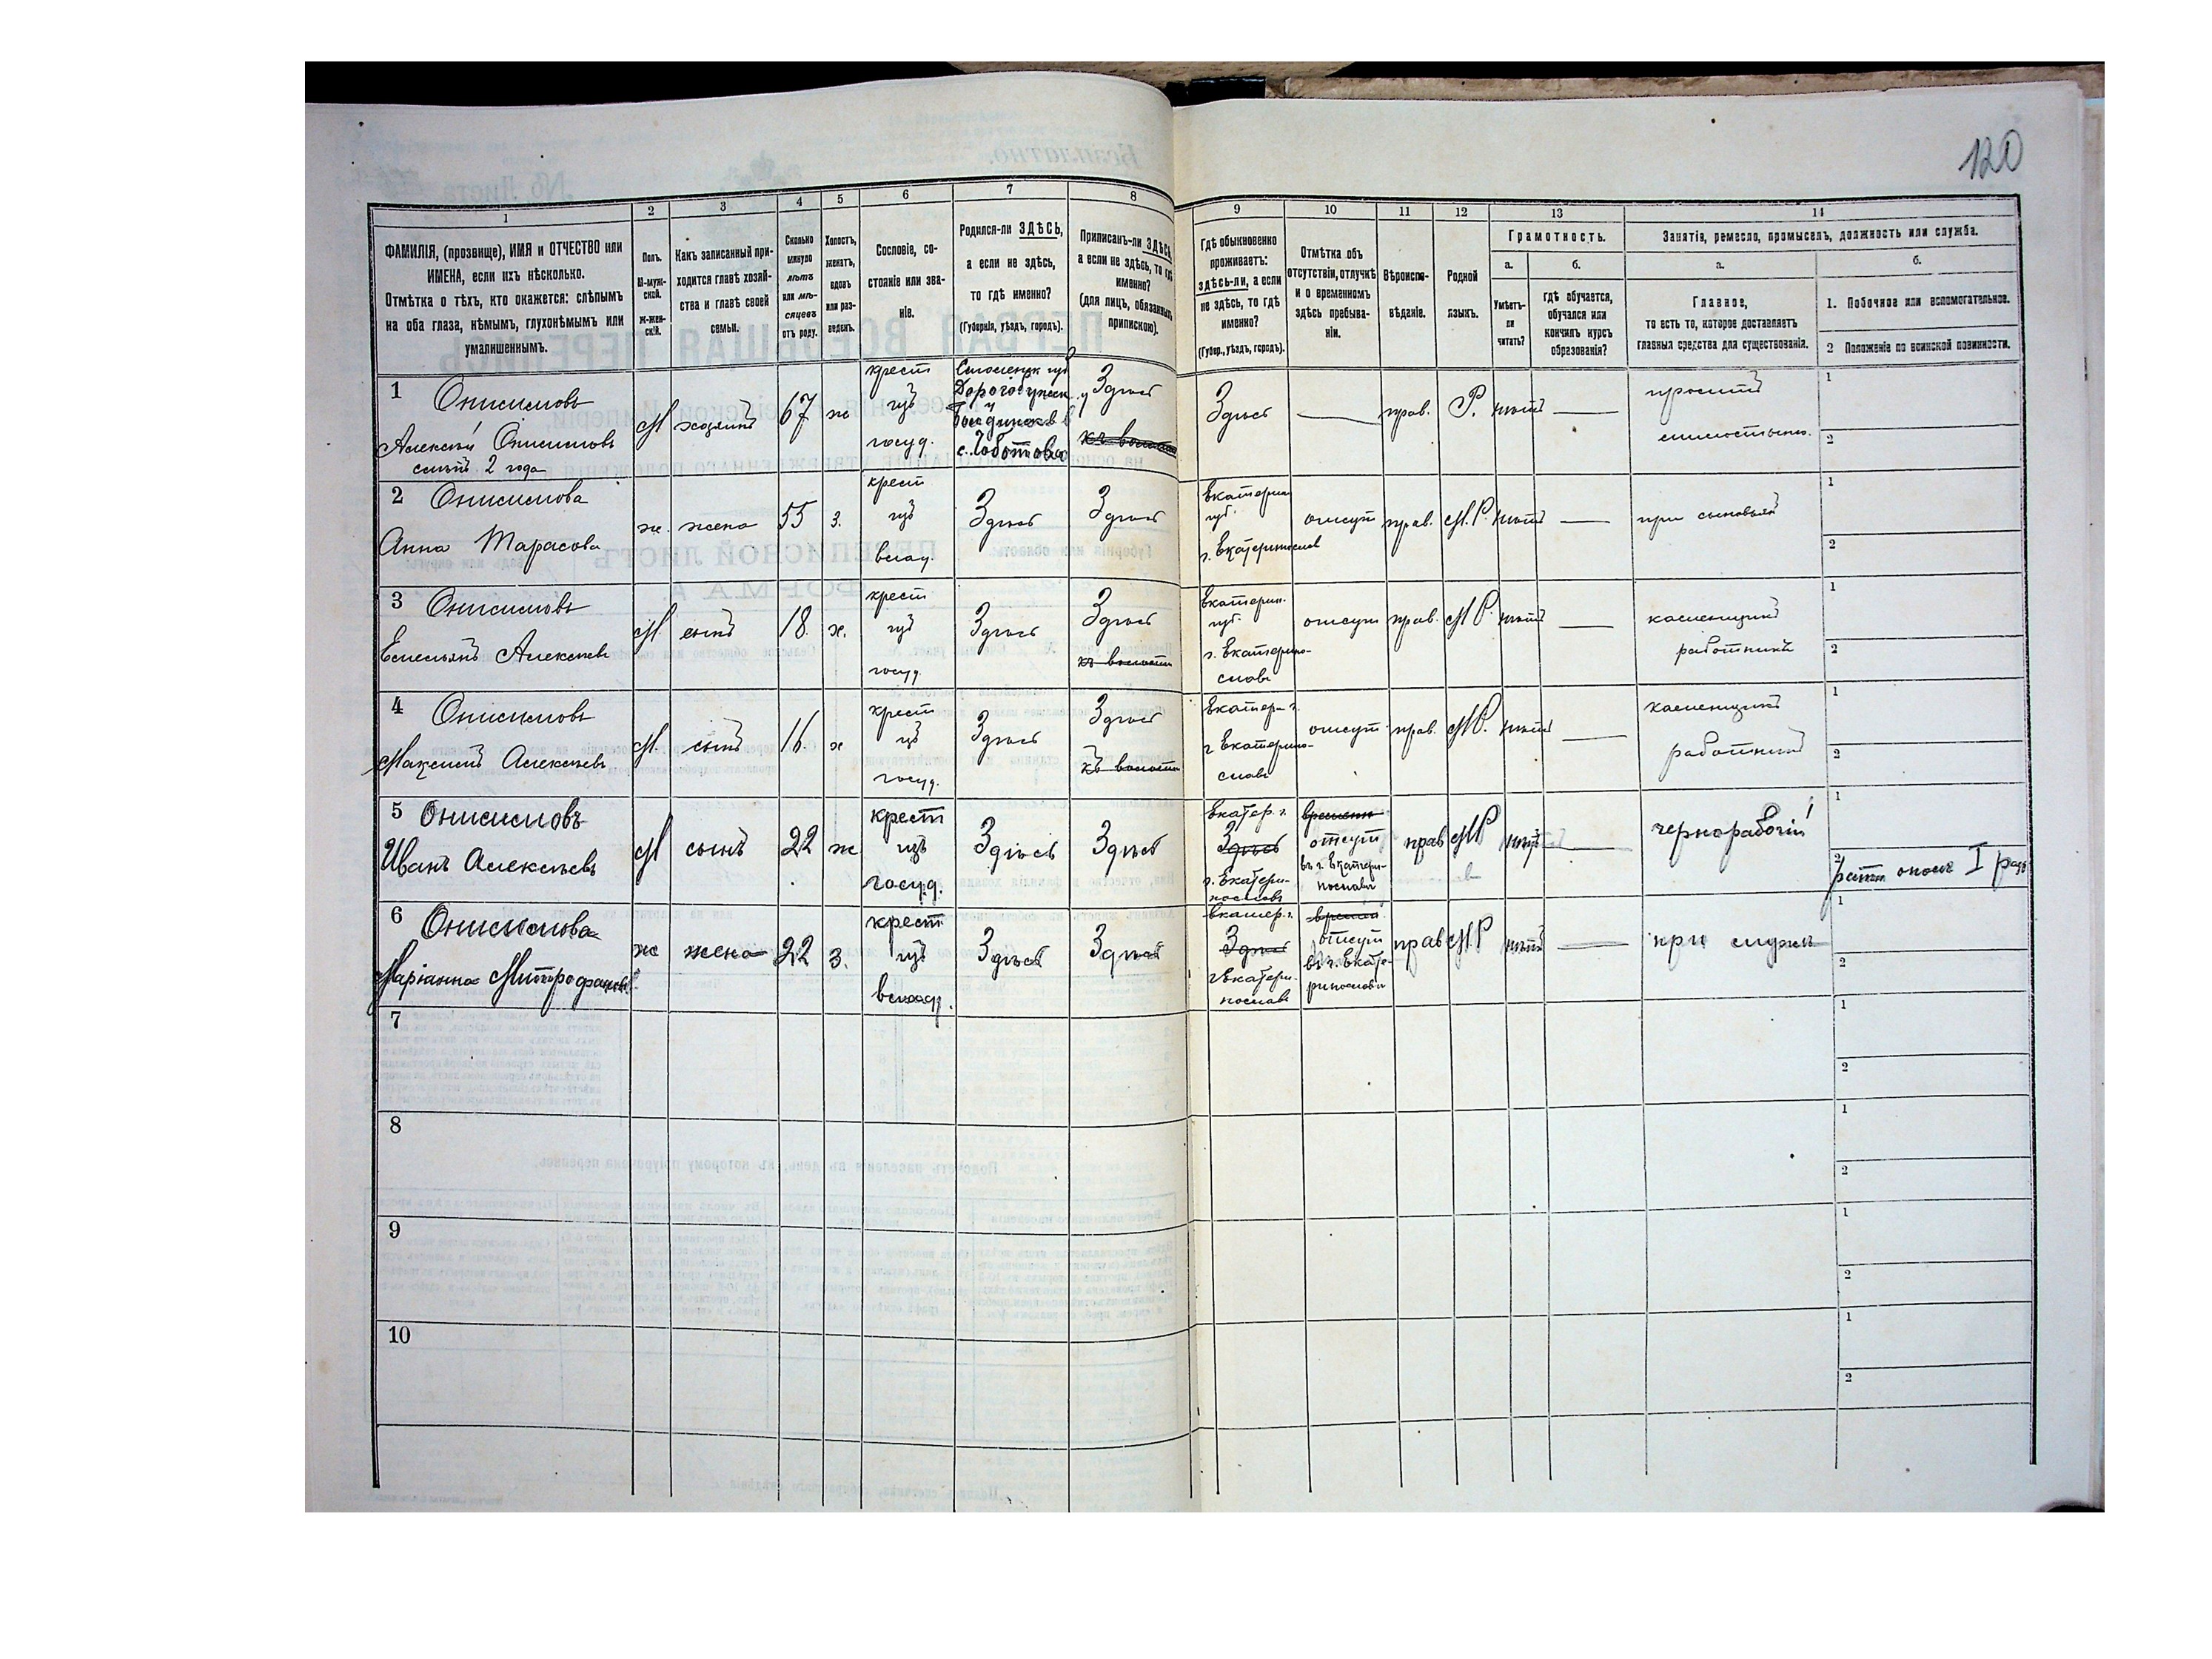 120
1
2
3
4
5
6
7
8
9
10
11
12
13
14
ФАМИЛІЯ, (прозвище), ИМЯ и ОТЧЕСТВО или
ИМЕНА, если ихъ нѣсколько.
Отмѣтка о тѣхъ, кто окажется: слѣпымъ
на оба глаза, нѣмымъ, глухонѣмымъ или
умалишеннымъ.
Полъ.
М-муж-
ской.
ж-жен-
скій.
Какъ записанный при-
ходится главѣ хозяй-
ства и главѣ своей
семьи.
Сколько
минуло
лѣтъ
или мѣ-
сяцевъ
отъ роду.
Холостъ,
женатъ,
вдовъ
или раз-
веденъ.
Сословіе, со-
стояніе или зва-
ніе.
Родился-ли ЗДѢСЬ,
а если не здѣсь,
то гдѣ именно?
(Губернія, уѣздъ, городъ).
Приписанъ-ли ЗДѢСЬ,
а если не здѣсь, то гдѣ
именно?
(для лицъ, обязанныхъ
припискою).
Гдѣ обыкновенно
проживаетъ:
здѣсь-ли, а если
не здѣсь, то гдѣ
именно?
(Губер., уѣздъ, городъ).
Отмѣтка объ
отсутствіи, отлучкѣ
и о временномъ
здѣсь пребыва-
ніи.
Вѣроиспо-
вѣданіе.
Родной
языкъ.
Грамотность.
а.
Умѣетъ-
ли
читать?
б.
гдѣ обучается,
обучался или
кончилъ курсъ
образованія?
Занятія, ремесло, промыселъ, должность или служба.
а.
Главное,
то есть то, которое доставляетъ
главныя средства для существованія.
б.
1. Побочное или вспомогательное.
2 Положеніе по воинской повинности.
1 Онисимовъ
Алексѣй Онисимовъ
слѣпъ 2 года
М хозяинъ 67 ж
крест
изъ
госуд.
Смоленск губ
Дорогобужск. у
с. Чоботова
Здѣсь
Здѣсь
—
прав. Р. нѣтъ —
проситъ
милостыню.
1
2
2 Онисимова
Анна Тарасова
ж. жена 55 з.
крест
изъ
влад.
Здѣсь
Здѣсь
Екатерин
губ.
г. Екатеринослав
отсут прав. М.Р. нѣтъ —
при сыновьяхъ
1
2
3 Онисимовъ
Емельянъ Алексѣевъ
М. сынъ 18. х.
крест
изъ
госуд.
Здѣсь
Здѣсь
къ волости
Екатерин.
губ.
г. Екатерино-
славъ
отсут прав. М Р. нѣтъ —
каменщикъ
работникъ
1
2
4 Онисимовъ
Максимъ Алексѣевъ
М. сынъ 16. х
крест
изъ
госуд.
Здѣсь
Здѣсь
къ волости
Екатер. г.
г Екатерино-
славъ
отсут прав. М Р. нѣтъ —
каменщикъ
работникъ
1
2
5 Онисимовъ
Иванъ Алексѣевъ
М сынъ 22 ж
крест
изъ
госуд.
Здѣсь
Здѣсь
Екатер. г.
Здѣсь
г. Екатери-
нославъ
времен
отсут
въ г. Екатери-
нославѣ
прав М Р нѣтъ —
чернорабочій
1
2
ратн опол I разр
6 Онисимова
Маріанна Митрофанов
ж жена 22 з.
крест
изъ
влад.
Здѣсь
Здѣсь
Екатер. г.
Здѣсь
г Екатери-
нославъ
времен
отсут
въ г. Екате-
ринославѣ
прав М.Р нѣтъ —
при мужѣ
1
2
7
1
2
8
1
2
9
1
2
10
1
2